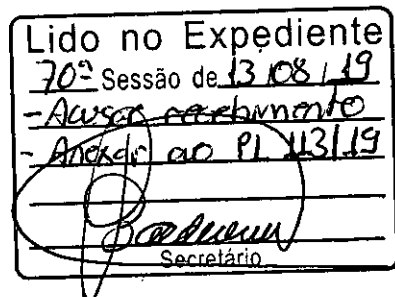 Lido no Expediente
70ª Sessão de 13/08/19
- Acusar recebimento
- Anexar ao PL 113/19
Secretário